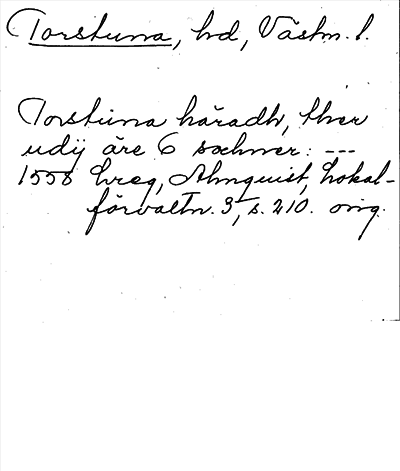 Torstuna, hd, Västm. l.
Torstuna häradh, ther
udij äre 6 sochner: ---
1558 hreg, Almquist, Lokal-
förvaltn. 3, s. 210. orig.